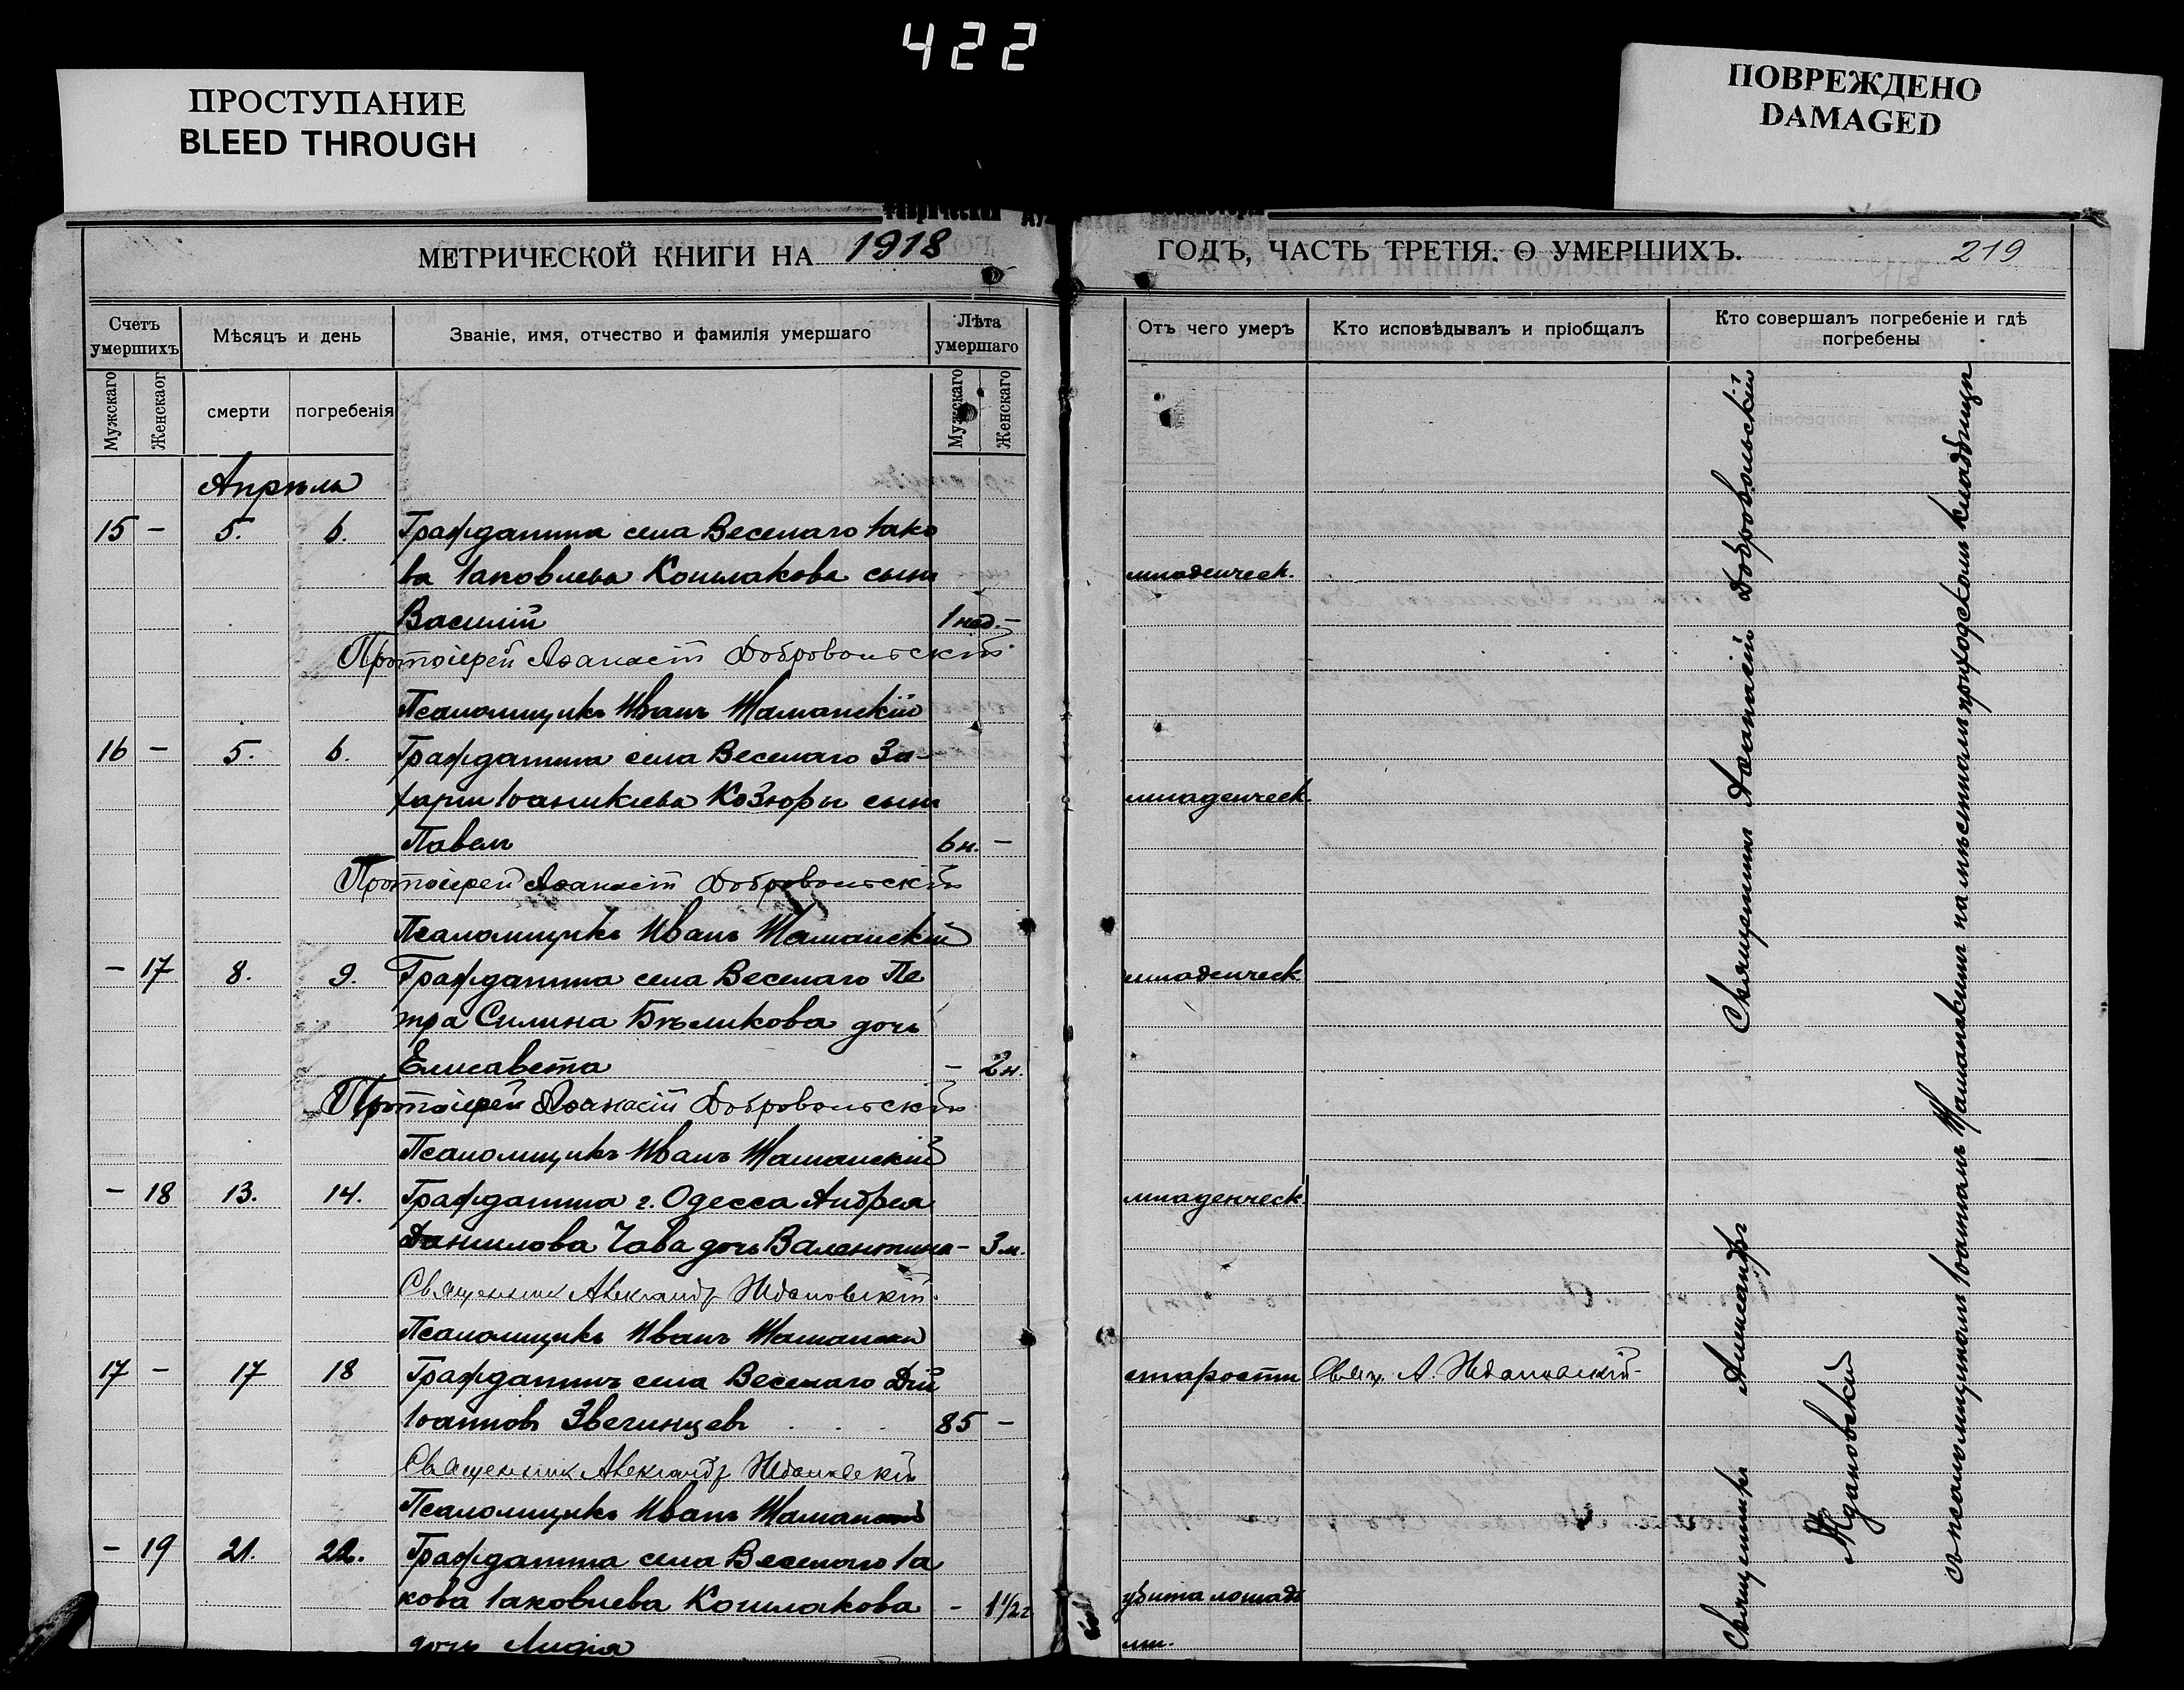 422
ПРОСТУПАНИЕ
BLEED THROUGH
ПОВРЕЖДЕНО
DAMAGED
МЕТРИЧЕСКОЙ КНИГИ НА 1918
ГОДЪ, ЧАСТЬ ТРЕТІЯ. О УМЕРШИХЪ.
219
Счетъ умершихъ
Мѣсяцъ и день
Званіе, имя, отчество и фамилія умершаго
Лѣта умершаго
Отъ чего умеръ
Кто исповѣдывалъ и пріобщалъ
Кто совершалъ погребеніе и гдѣ погребены
Мужскаго
Женскаог
смерти
погребенія
Мужскаго
Женскаго
Апрѣль
15 – 5. 6. Гражданина села Веселаго Іако
ва Іаковлева Кошлакова сынъ младенческ.
Василій 1 нед. –
Протоіерей Аѳанасій Добровольскій
Псаломщикъ Иванъ Шаманскій
16 – 5. 6. Гражданина села Веселаго За-
харіи Іоаникіева Козюры сынъ младенческ.
Павелъ 6 н. –
Протоіерей Аѳанасій Добровольскій
Псаломщикъ Иванъ Шаманскій
– 17 8. 9. Гражданина села Веселаго Пе младенческ.
тра Силина Бѣликова дочь
Елисавета – 2 н.
Протоіерей Аѳанасій Добровольскій
Псаломщикъ Иванъ Шаманскій
– 18 13. 14. Гражданина г. Одесса Андрея младенческ.
Данилова Чава дочь Валентина – 3 м.
Священник Александр Ждановскій.
Псаломщикъ Иванъ Шаманскій
17 – 17 18 Гражданинъ села Веселаго старости Свящ. А. Ждановскій
Іоанновъ Звегинцевъ 85 –
Священник Александр Ждановскій
Псаломщикъ Иванъ Шаманскій
– 19 21. 22. Гражданина села Веселаго Іа
кова Іаковлева Кошлакова – 1 1/2 г. убита лошадь
дочь Лидія ми.
Священникъ Аѳанасій Добровольскій
Священникъ Александръ
Ждановскій
съ псаломщикомъ Іоанномъ Шаманскимъ на мѣстномъ приходскомъ кладбищѣ